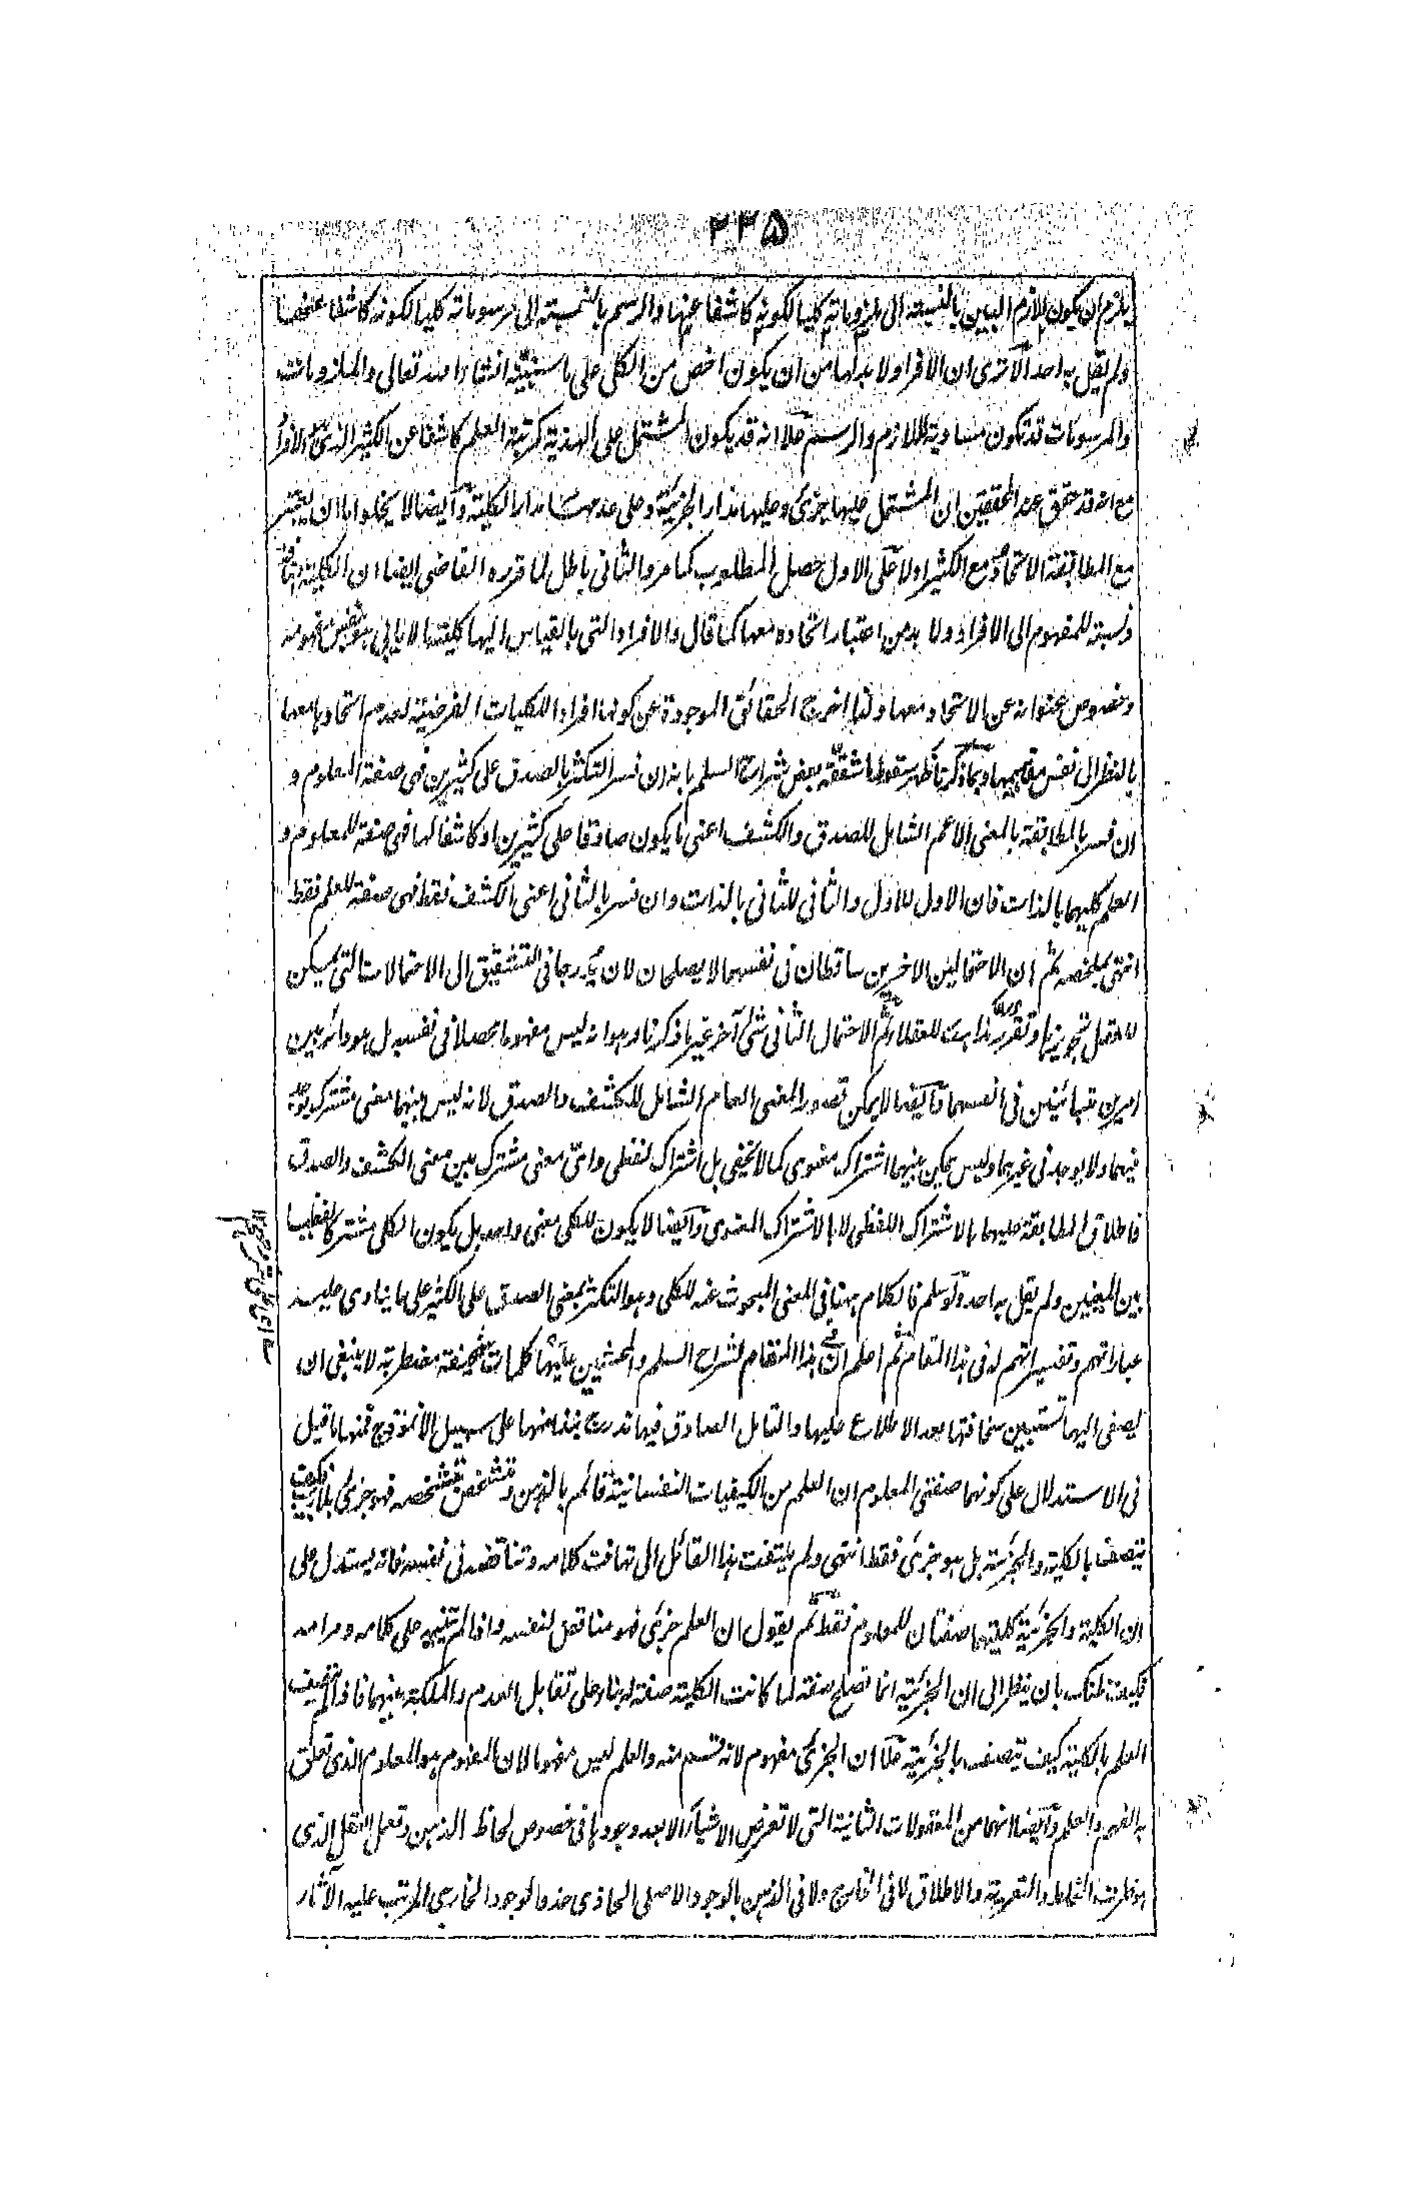 ٢٣٥
يلزم ان يكون اللازم البين بالنسبة الى ملزوماته كليا لكونه كاشفا عنها والرسم بالنسبة الى مرسوماته كليا لكونه كاشفا عنها
ولم يقل به احد الا ترى ان الافراد لا بد لها من ان يكون اخص من الكلى على ما سنبينه انشاء الله تعالى والملزومات
والمرسومات قد تكون مساوية لللازم والرسم مثلا انه قد يكون المشتمل على الهذية كمرتبة العلم كاشفا عن الكثير الذى
مع انه قد حقق عند المحققين ان المشتمل عليها جزئى وعليها مدار الجزئية وعلى عدمها مدار الكلية وايضا لا يخلوا اما ان يعتبر
مع المطابقة الاتحاد مع الكثير او لا على الاول حصل المطلوب كما مر والثانى باطل لما قرره القاضى ايضا ان الكلية
نسبة للمفهوم الى الافراد ولا بد من اعتبار اتحاده معها كما قال والافراد التى بالقياس اليها كليته ما لا يابى بنفس مفهومه
وخصوص عنوانه عن الاتحاد معها ولذا اخرج الحقائق الموجودة عن كونها افرادا للكليات الفرضية لعدم اتحادها معها
بالنظر الى نفس مفاهيمها وبما ذكرنا ظهر سقوط ما شققه بعض شراح السلم بانه ان فسر التكثر بالصدق على كثيرين فهى صفة المعلوم و
ان فسر بالمطابقة بالمعنى الاعم الشامل للصدق والكشف اعنى ما يكون صادقا على كثيرين او كاشفا لها فهى صفة للمعلوم و
العلم كليهما بالذات فان الاول للاول والثانى للثانى بالذات وان فسر بالثانى اعنى الكشف فقط فهى صفة للعلم فقط
انتهى بملخصه ثم ان الاحتمالين الاخيرين ساقطان فى نفسهما لا يصلحان لان يدرجا فى التشقيق الى الاحتمالات التى يمكن
للعقل تجويزها وتقريره مذاهب للعقلاء ثم الاحتمال الثانى شئ آخر غير ما ذكرنا وهو انه ليس مفهوما محصلا فى نفسه بل هو دائر بين
امرين متبائنين فى انفسهما وايضا لا يمكن تصور المعنى العام الشامل للكشف والصدق لانه ليس بينهما معنى مشترك يوجد
فيهما ولا يوجد فى غيرهما وليس يمكن بينهما اشتراك معنوى كما لا يخفى بل اشتراك لفظى واىّ معنى مشترك بين معنى الكشف والصدق
فاطلاق المطابقة عليهما بالاشتراك اللفظى لا بالاشتراك المعنوى وايضا لا يكون للكلى معنى واحد بل يكون الكلى مشتركا لفظيا
بين المعنيين ولم يقل به احد ولو سلم فالكلام ههنا فى المعنى المبحوث عنه للكلى وهو التكثر بمعنى الصدق على الكثير على ما ينادى عليه
عباراتهم وتفسيراتهم له فى هذا المقام ثم اعلم ان فى هذا المقام لشراح السلم والمحشيين عليها كلمات سخيفة مضطربة لا ينبغى ان
يصغى اليها تستبين سخافتها بعد الاطلاع عليها والتامل الصادق فيها ندرج نبذا منها على سبيل الانموذج فمنها ما قيل
فى الاستدلال على كونهما صفتى المعلوم ان العلم من الكيفيات النفسانية قائم بالذهن وتشخص بتشخصه فهو جزئى بلا ريب فكيف
يتصف بالكلية والجزئية بل هو جزئى فقط انتهى ولم يلتفت هذا القائل الى تهافت كلامه وتناقضه فى نفسه فانه يستدل على
ان الكلية والجزئية كليهما صفتان للمعلوم فقط ثم يقول ان العلم جزئى فهو مناقض لنفسه واذا لم يتنبه على كلامه ومرامه
فكيف بك بان ينظر الى ان الجزئية انما تصلح صفة لما كانت الكلية صفة له بناء على تقابل العدم والملكة بينهما فاذا لم يتصف
العلم بالكلية كيف يتصف بالجزئية مثلا ان الجزئى مفهوم لانه قسم منه والعلم ليس مفهوما لان المفهوم هو المعلوم الذى تعلق
به الفهم والعلم وايضا لانهما من المعقولات الثانية التى لا تعرض الاشياء الا بعد وجودها فى خصوص لحاظ الذهن وتعمل العقل الذى
هو ظرف الخلط والتعرية والاطلاق لا فى الخارج ولا فى الذهن بالوجود الاصلى الحاذى حذو الوجود الخارجى المرتب عليه الآثار